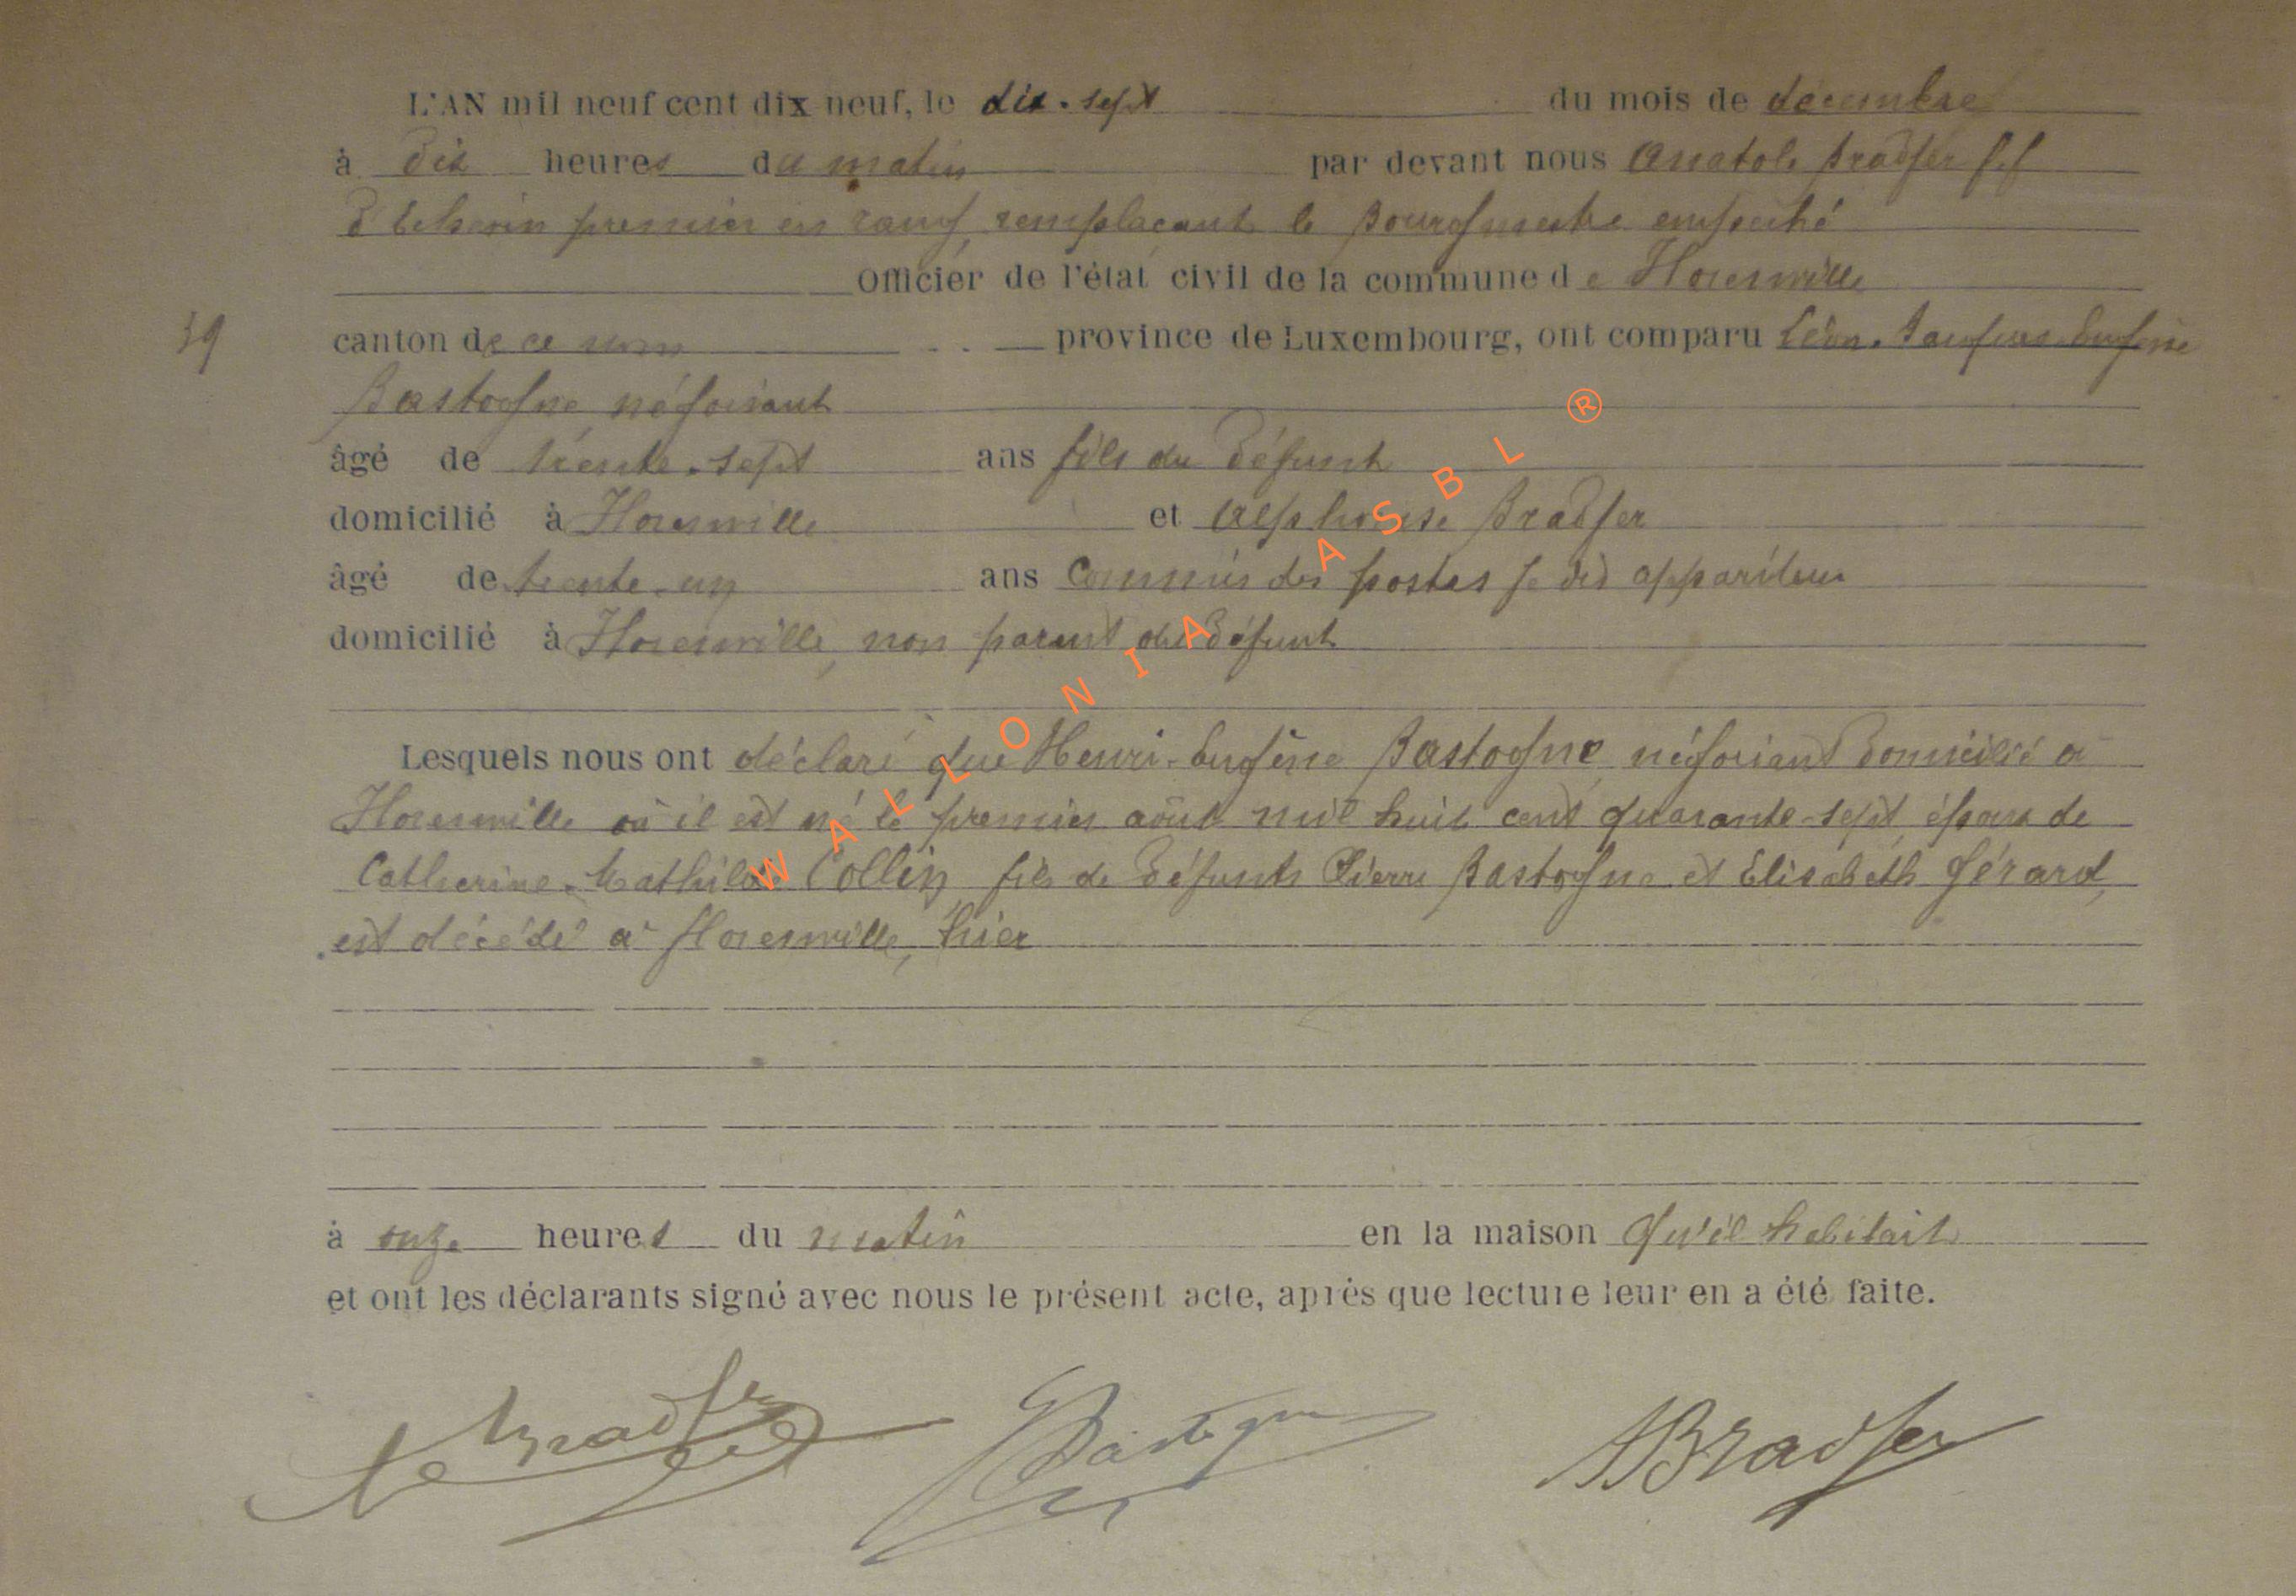 L'AN mil neuf cent dix neuf, le dix-sept du mois de décembre
à Dix heures du matin par devant nous Anatole Bradfer f.f
d'Echevin premier en rang, remplaçant le Bourgmestre empêché
Officier de l'état civil de la commune de Florenville
39 canton de ce nom province de Luxembourg, ont comparu Léon Eugène
Bastogne, négociant
âgé de trente-sept ans fils du défunt
domicilié à Florenville et Alphonse Bradfer
âgé de trente-un ans Commis des postes appariteur
domicilié à Florenville, non parent du défunt
Lesquels nous ont déclaré que Henri-Eugène Bastogne, négociant domicilié à
Florenville où il est né le premier août mil huit cent quarante-sept, époux de
Catherine-Mathilde Collin, fils de défunts Pierre Bastogne et Elisabeth Gérard,
est décédé à Florenville, hier
à onze heures du matin en la maison qu'il habitait
et ont les déclarants signé avec nous le présent acte, après que lecture leur en a été faite.
Bradfer Bastogne ABradfer
WALLONIA ASBL ®